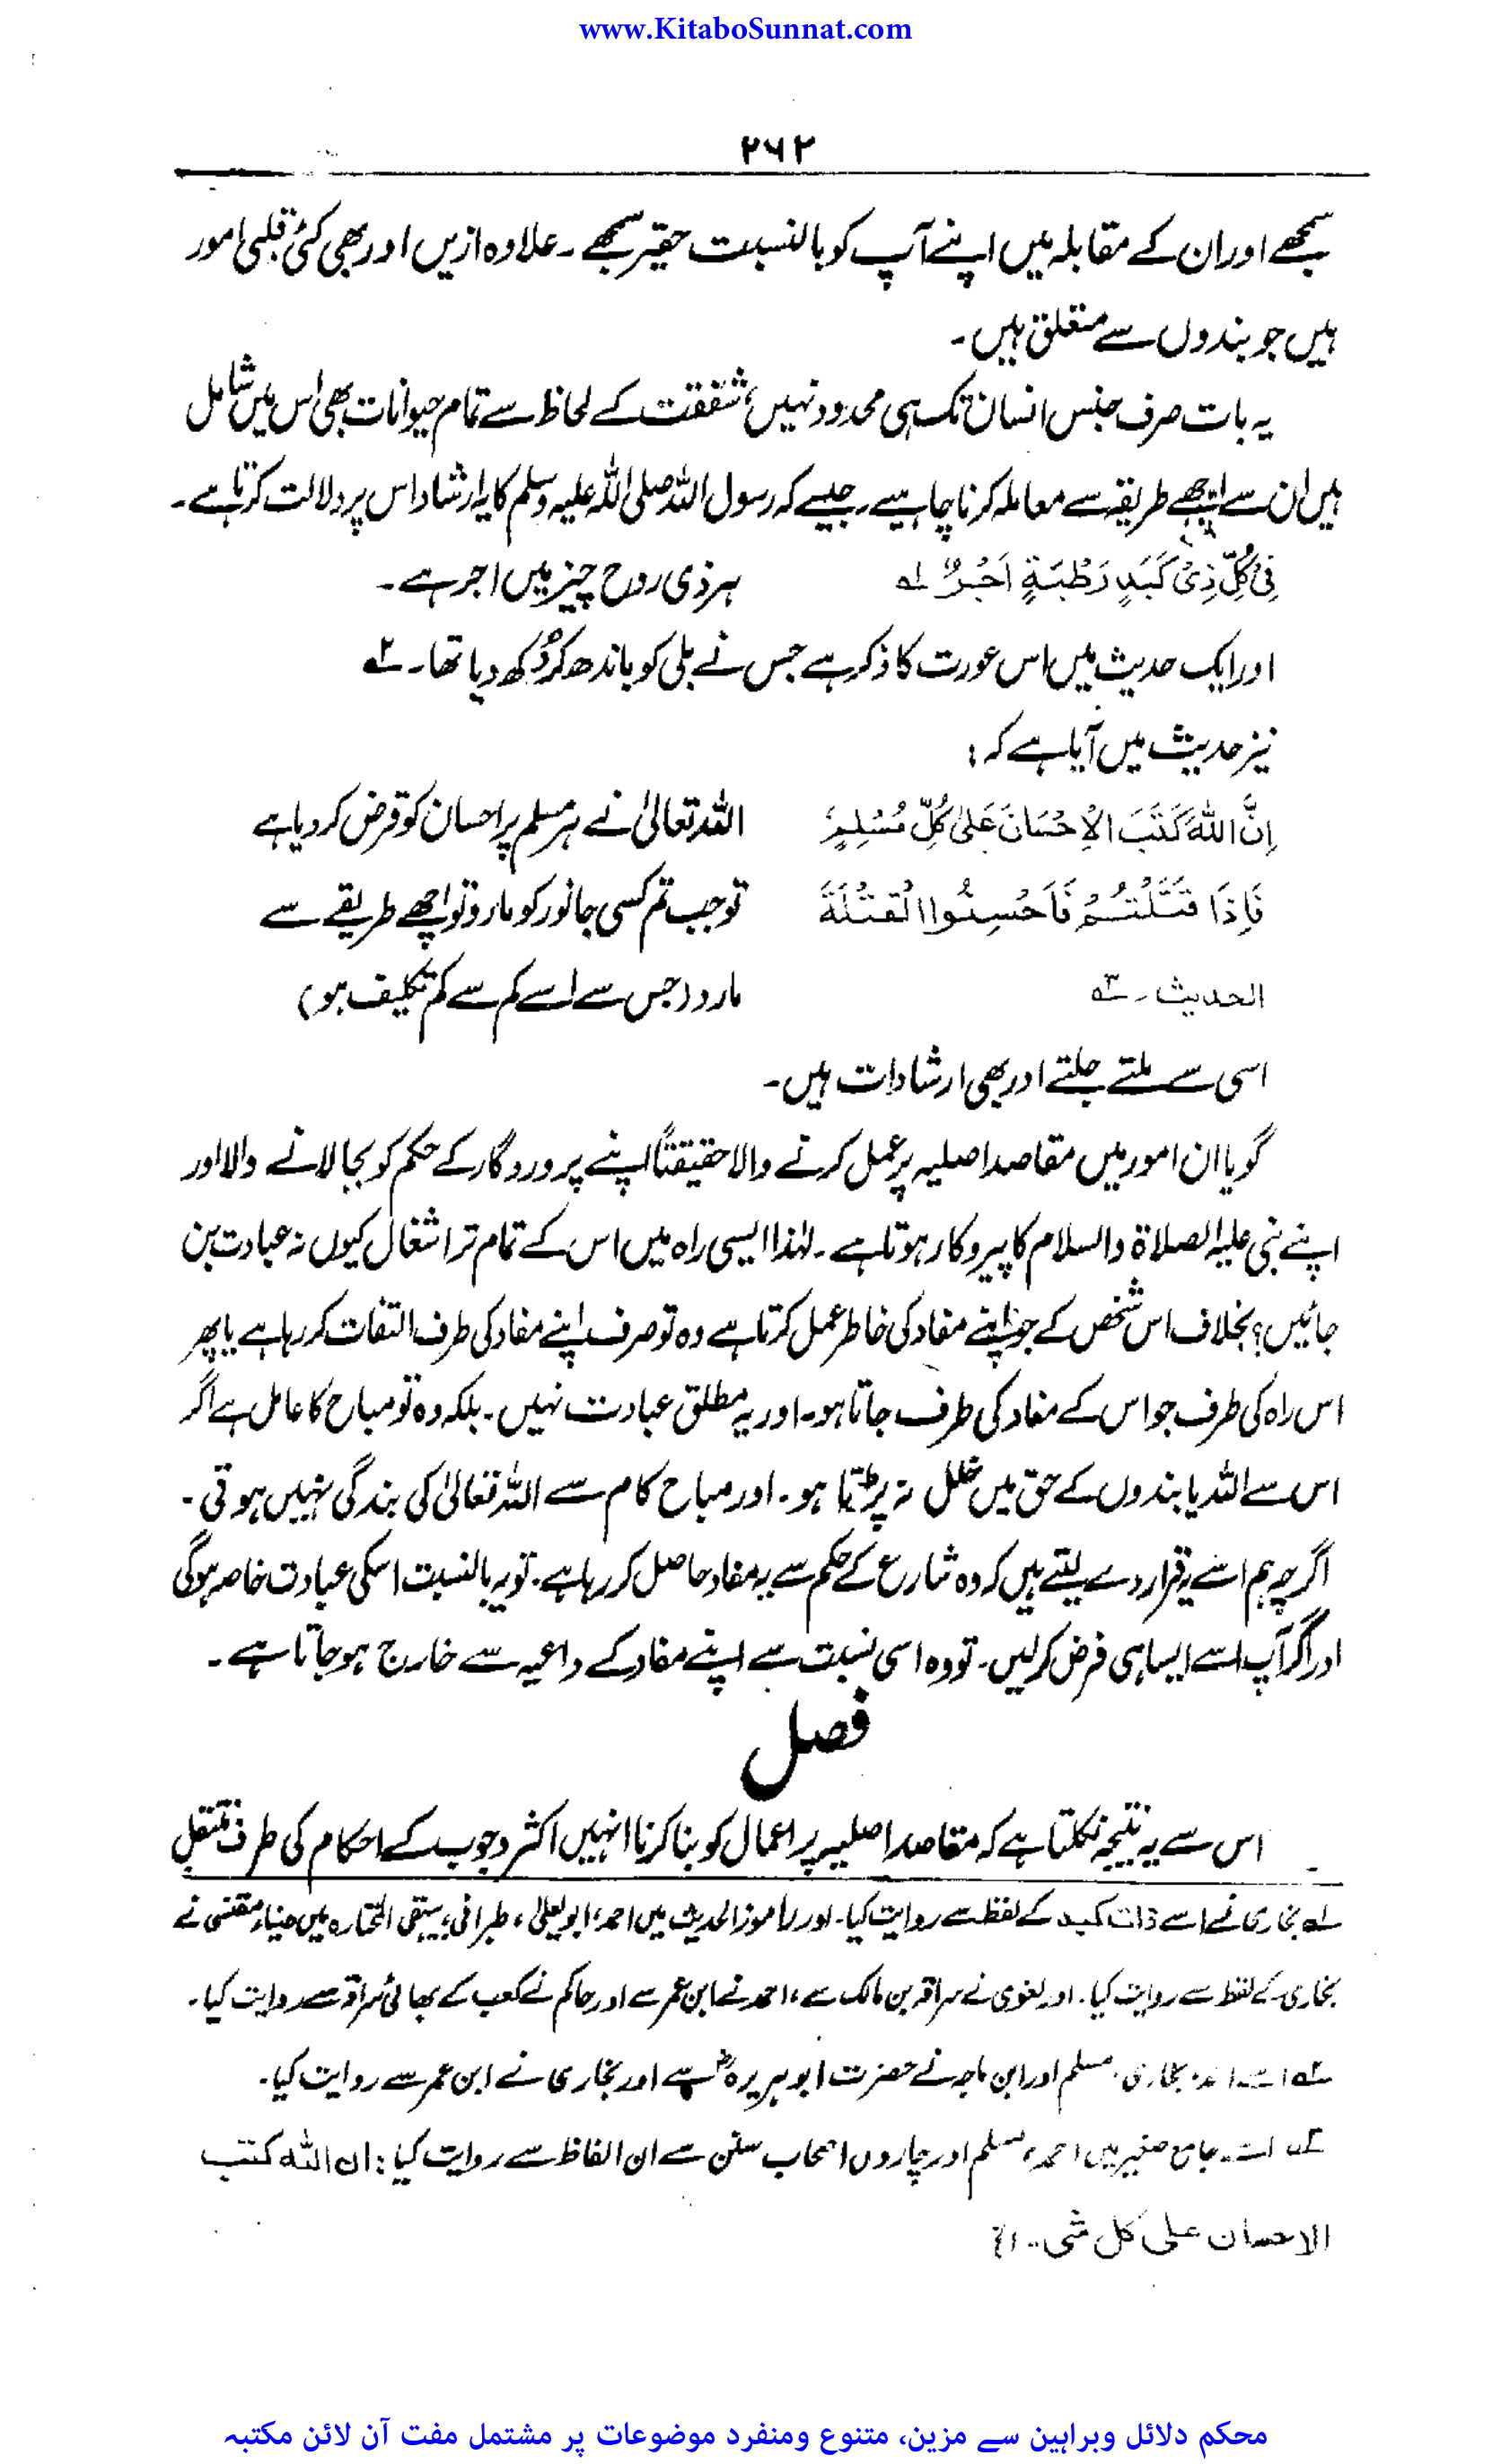 www.KitaboSunnat.com
۲۶۲
سمجھے اور ان کے مقابلہ میں اپنے آپ کو بالنسبت حقیر سمجھے ۔ علاوہ ازیں اور بھی کئی قلبی امور
ہیں جو بندوں سے متعلق ہیں ۔
یہ بات صرف جنس انسان تک ہی محدود نہیں، شفقت کے لحاظ سے تمام حیوانات بھی اس میں شامل
ہیں ان سے اچھے طریقہ سے معاملہ کرنا چاہیے ۔ جیسے کہ رسول اللہ صلی اللہ علیہ وسلم کا یہ ارشاد اس پر دلالت کرتا ہے ۔
فِیْ کُلِّ ذِیْ کَبَدٍ رَطْبَةٍ اَجْرٌ ۱ہ ہر ذی روح چیز میں اجر ہے ۔
اور ایک حدیث میں اس عورت کا ذکر ہے جس نے بلی کو باندھ کر دُکھ دیا تھا ۔ ۲ہ
نیز حدیث میں آیا ہے کہ :
اِنَّ اللّٰہَ کَتَبَ الْاِحْسَانَ عَلٰی کُلِّ مُسْلِمٍ اللہ تعالیٰ نے ہر مسلم پر احسان کو فرض کر دیا ہے
فَاِذَا قَتَلْتُمْ فَاَحْسِنُوا الْقِتْلَةَ تو جب تم کسی جانور کو مارو تو اچھے طریقے سے
الحدیث ۔ ۳ہ مارو (جس سے اسے کم سے کم تکلیف ہو)
اسی سے ملتے جلتے اور بھی ارشادات ہیں ۔
گویا ان امور میں مقاصد اصلیہ پر عمل کرنے والا حقیقتاً اپنے پروردگار کے حکم کو بجا لانے والا اور
اپنے نبی علیہ الصلاۃ والسلام کا پیروکار ہوتا ہے ۔ لہٰذا ایسی راہ میں اس کے تمام تر اشغال کیوں نہ عبادت بن
جائیں؟ بخلاف اس شخص کے جو اپنے مفاد کی خاطر عمل کرتا ہے وہ تو صرف اپنے مفاد کی طرف التفات کر رہا ہے یا پھر
اس راہ کی طرف جو اس کے مفاد کی طرف جاتا ہو۔ اور یہ مطلق عبادت نہیں ۔ بلکہ وہ تو مباح کا عامل ہے اگر
اس سے اللہ یا بندوں کے حق میں خلل نہ پڑتا ہو ۔ اور مباح کام سے اللہ تعالیٰ کی بندگی نہیں ہوتی ۔
اگرچہ ہم اسے یہ قرار دے لیتے ہیں کہ وہ شارع کے حکم سے یہ مفاد حاصل کر رہا ہے ۔ تو یہ بالنسبت اسکی عبادت خاصہ ہوگی
اور اگر آپ اسے ایسا ہی فرض کر لیں ۔ تو وہ اسی نسبت سے اپنے مفاد کے داعیہ سے خارج ہو جاتا ہے ۔
فصل
اس سے یہ نتیجہ نکلتا ہے کہ مقاصد اصلیہ پر اعمال کو بنا کرنا انہیں اکثر وجوب کے احکام کی طرف منتقل
۱ہ بخاری نے اسے ذات کبد کے لفظ سے روایت کیا ۔ اور راموز الحدیث میں احمد، ابویعلیٰ، طبرانی، بیہقی المختارہ میں ضیاء مقدسی نے
بخاری کے لفظ سے روایت کیا ۔ اور بغوی نے سراقہ بن مالک سے، احمد نے ابن عمر سے اور حاکم نے کعب کے بھائی سراقہ سے روایت کیا ۔
۲ہ اسے احمد، بخاری، مسلم اور ابن ماجہ نے حضرت ابوہریرہؓ سے اور بخاری نے ابن عمر سے روایت کیا ۔
۳ہ اسے جامع صغیر میں احمد، مسلم اور چاروں اصحاب سنن سے ان الفاظ سے روایت کیا : ان اللہ کتب
الاحسان علی کل شی
محکم دلائل وبراہین سے مزین، متنوع ومنفرد موضوعات پر مشتمل مفت آن لائن مکتبہ